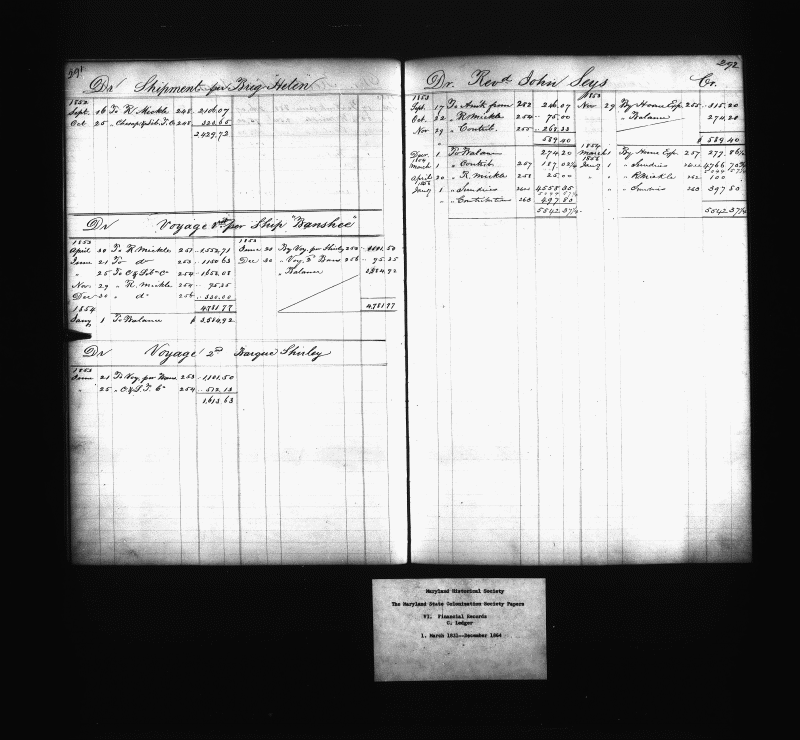 291
Dr Shipment per Brig Helen
1852
Sept. 16 To R Mickle 248 2106.07
Oct 25 " Ches. & Lib. T. Co 248 323.65
2429.72
Dr Voyage per Ship "Banshee"
1853 1853
April 30 To R Mickle 251 1552.71 June 21 By Voy. per Shirley 253 1101.50
June 21 To do 253 1150.63 Dec 30 " Voy. 2d Bans 256 95.35
" 25 To C & Lib Co 254 1653.08 " Balance 3584.92
Nov. 29 " R. Mickle 254 95.35
Dec 30 " do 256 330.00
4781.77 4781.77
1854
Jany 1 To Balance $ 3584.92
Dr Voyage 2d Barque Shirley
1853
June 21 To Voy. per Bans 253 1101.50
" 25 " C & L T. Co 254 512.13
1613.63
292
Dr. Revd John Seys Cr.
1853 1853
Sept. 17 To Amt from 282 246.07 Nov 29 By Home Exp. 255 315.20
Oct. 22 " R Mickle 254 75.00 " Balance 274.20
Nov 29 " Contrib. 255 268.33
589.40 $ 589.40
Decr. 1 To Balance 274.20 1854 March 1 By Home Exp. 257 279.86½
1854 March 1 " Contrib. 257 187.02½ 1856 Jany 1 " Sundries 4766.70¾
April 20 " R. Mickle 258 25.00 " " R Mickle 262 100
1856 Jany 1 " Sundries 4558.35 " " Sundries 263 397.50
" Contributions 263 497.50
5542.37½ 5542.37½
Maryland Historical Society
The Maryland State Colonization Society Papers
VI. Financial Records
C. Ledger
1. March 1831--December 1864